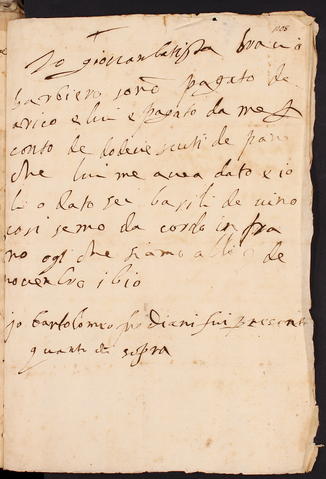 Io giovanbatista bravo
barbiero sono pagato de
e lui e pagato da me
conto de dodeci scuti de pan
che lui me avea dato e io
li o dato sei basili de vino
cosi semo da cordo in fra
noi ogi che siamo alli de
novenbro 1610
Io bartolomeo fui presente
quanto di sopra